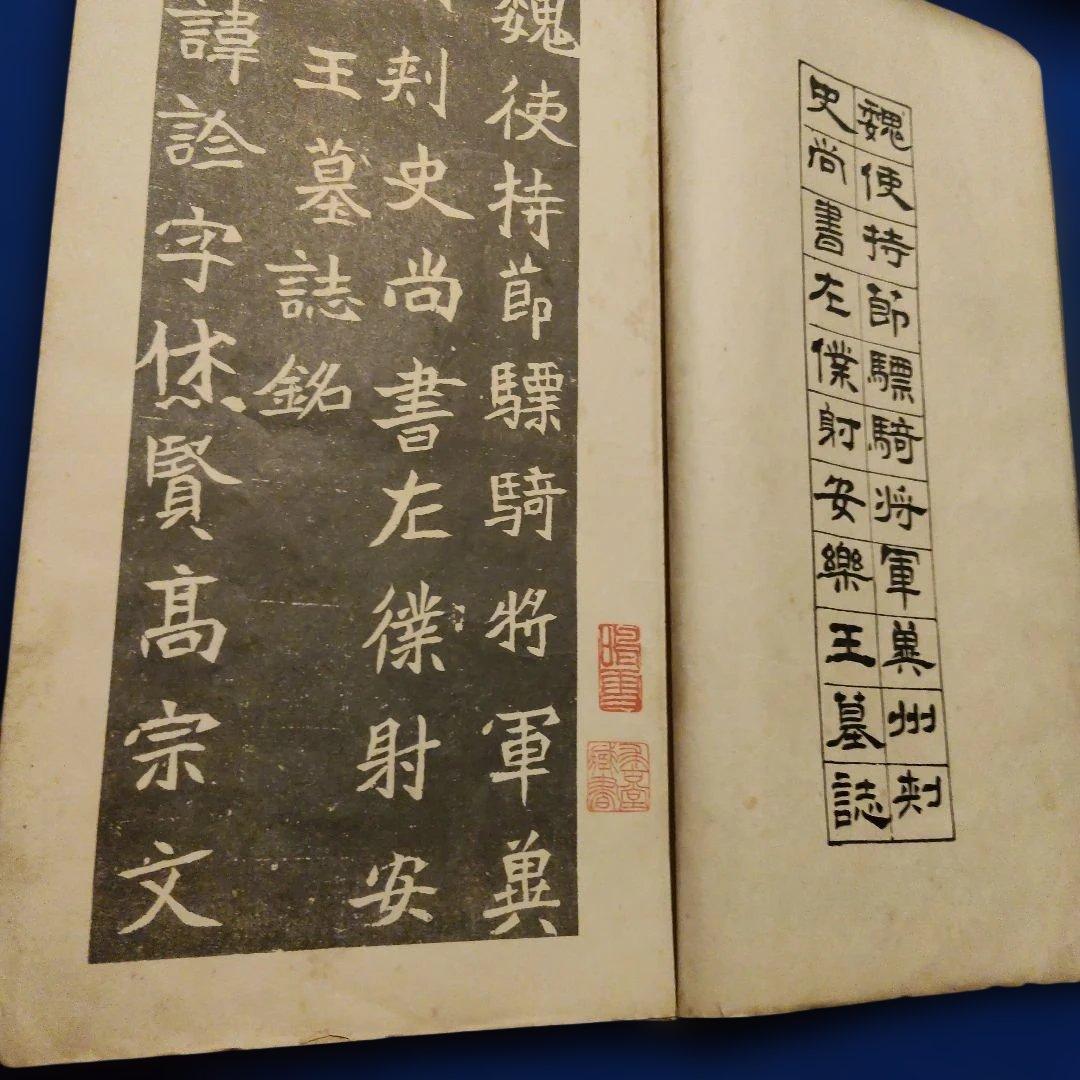 魏使持節驃騎将軍冀州刺
史尚書左僕射安樂王墓誌
魏使持節驃騎将軍冀
刺史尚書左僕射安
王墓誌銘
諱詮字休賢高宗文